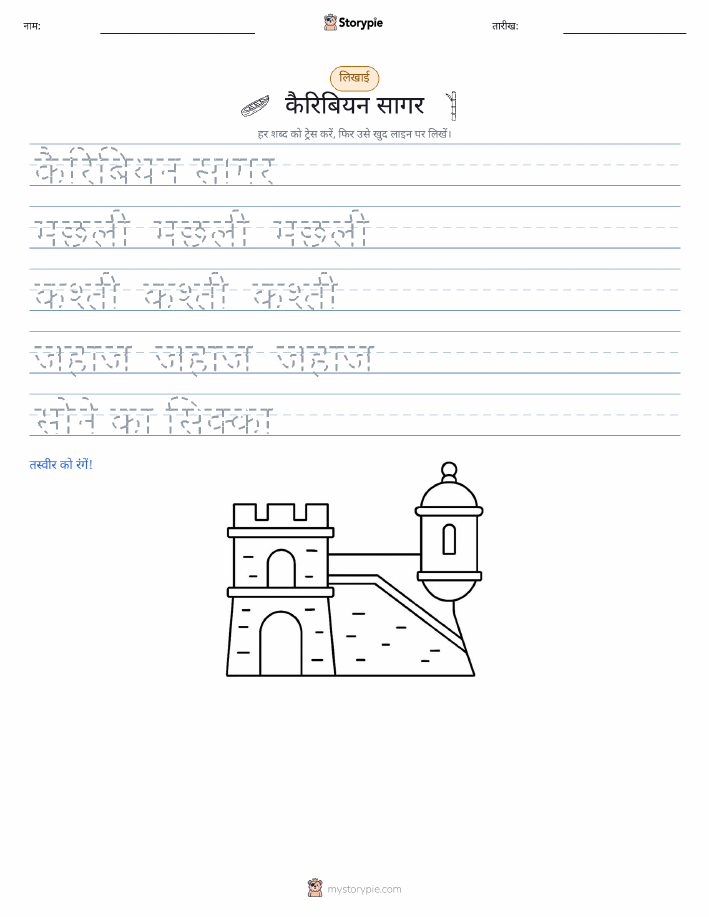 नाम:
Storypie
तारीख:
लिखाई
कैरिबियन सागर
हर शब्द को ट्रेस करें, फिर उसे खुद लाइन पर लिखें।
कैरिबियन सागर
मछली मछली मछली
कश्ती कश्ती कश्ती
जहाज जहाज जहाज
सोने का सिक्का
तस्वीर को रंगें!
mystorypie.com